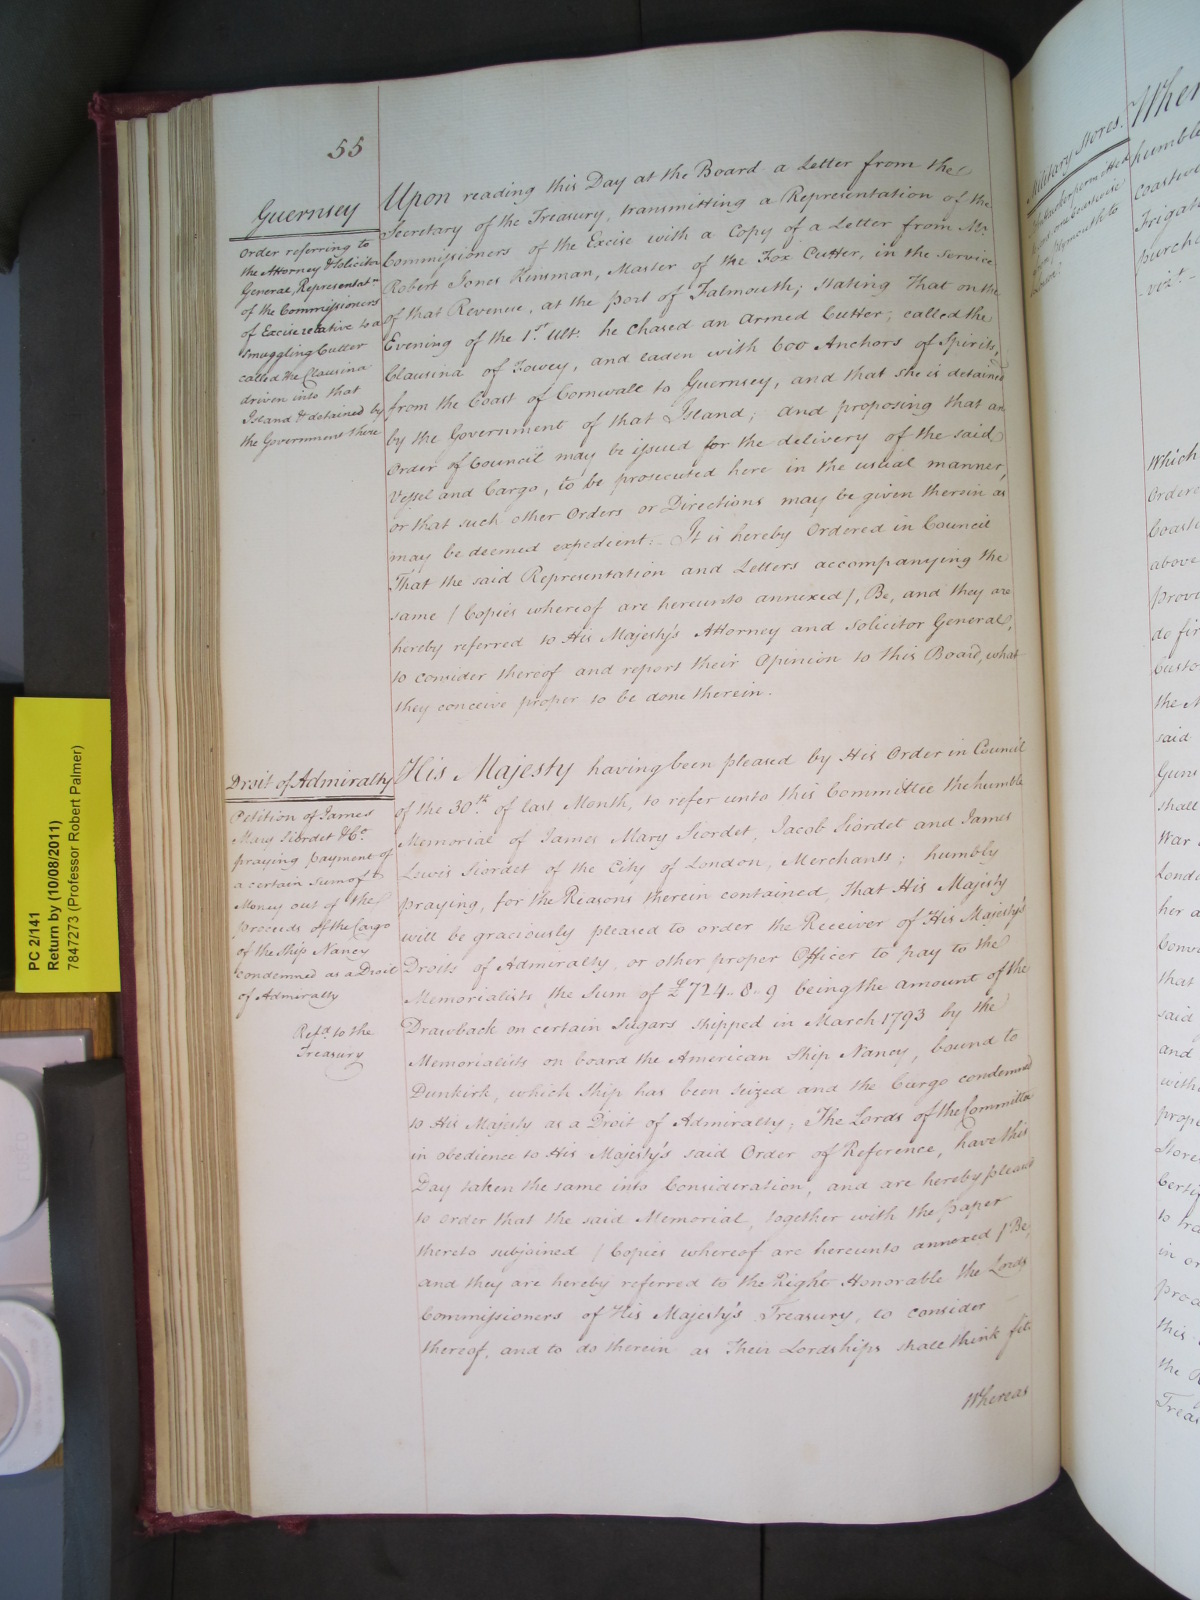 55
Guernsey
Order referring to
the Attorney & Solicitor
General, Representatn
of the Commissioners
of Excise relative to a
Smuggling Cutter
called the Clausina
driven into that
Island & detained by
the Government there
Upon reading this Day at the Board a Letter from the
Secretary of the Treasury, transmitting a Representation of the
Commissioners of the Excise with a Copy of a Letter from Mr
Robert Jones Kinsman, Master of the Fox Cutter, in the Service
of that Revenue, at the port of Falmouth; Stating That on the
Evening of the 1st Ult: he Chased an armed Cutter; called the
Clausina of Fowey, and laden with 600 Anchors of Spirits,
from the Coast of Cornwall to Guernsey, and that she is detained
by the Government of that Island; and proposing that an
Order of Council may be issued for the delivery of the said
Vessel and Cargo, to be prosecuted here in the usual manner,
or that such other Orders or Directions may be given therein as
may be deemed expedient:- It is hereby Ordered in Council
That the said Representation and Letters accompanying the
same / Copies whereof are hereunto annexed /, Be, and they are
hereby referred to His Majesty's Attorney and Solicitor General,
to consider thereof and report their Opinion to this Board, what
they conceive proper to be done therein.
Droit of Admiralty
Petition of James
Mary Siordet & Co
praying payment of
a certain Sum of
Money out of the
proceeds of the Cargo
of the Ship Nancy
condemned as a Droit
of Admiralty
Refd to the
Treasury
His Majesty having been pleased by His Order in Council
of the 30th of last Month, to refer unto this Committee the humble
Memorial of James Mary Siordet, Jacob Siordet and James
Lewis Siordet of the City of London, Merchants; humbly
praying, for the Reasons therein contained, that His Majesty
will be graciously pleased to order the Receiver of His Majesty's
Droits of Admiralty, or other proper Officer to pay to the
Memorialists the Sum of £724..8..9 being the amount of the
Drawback on certain Sugars shipped in March 1793 by the
Memorialists on board the American Ship Nancy, bound to
Dunkirk, which Ship has been seized and the Cargo condemned
to His Majesty as a Droit of Admiralty; The Lords of the Committee
in obedience to His Majesty's said Order of Reference, have this
Day taken the same into Consideration, and are hereby pleased
to order that the said Memorial, together with the paper
thereto subjoined / Copies whereof are hereunto annexed / Be,
and they are hereby referred to the Right Honorable the Lords
Commissioners of His Majesty's Treasury, to consider
thereof, and to do therein as Their Lordships shall think fit.
Whereas
PC 2/141
Return by (10/08/2011)
7847273 (Professor Robert Palmer)
Military Stores.
Wher
humble
Coastwi
Frigat
purcha
viz.t
Which
Ordere
Coaste
above
provi
de fir
Custo
the M
said
Guns
shall
War
Londo
her a
Conv
that
said
and
with
prope
Stores
Certi
to tra
in or
proc
this
the R
Treas